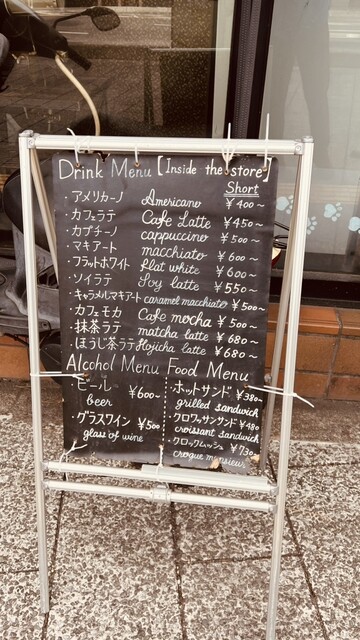 Drink Menu [Inside the store]
Short
・アメリカーノ Americano ¥400～
・カフェラテ Cafe Latte ¥450～
・カプチーノ cappuccino ¥500～
・マキアート macchiato ¥600～
・フラットホワイト flat white ¥600～
・ソイラテ Soy latte ¥550～
・キャラメルマキアート caramel macchiato ¥500～
・カフェモカ Cafe mocha ¥500～
・抹茶ラテ matcha latte ¥680～
・ほうじ茶ラテ Hojicha latte ¥680～
Alcohol Menu
・ビール ¥600～
beer
・グラスワイン ¥500
glass of wine
Food Menu
・ホットサンド ¥380～
grilled sandwich
・クロワッサンサンド ¥480
croissant sandwich
・クロックムッシュ ¥730
croque monsieur